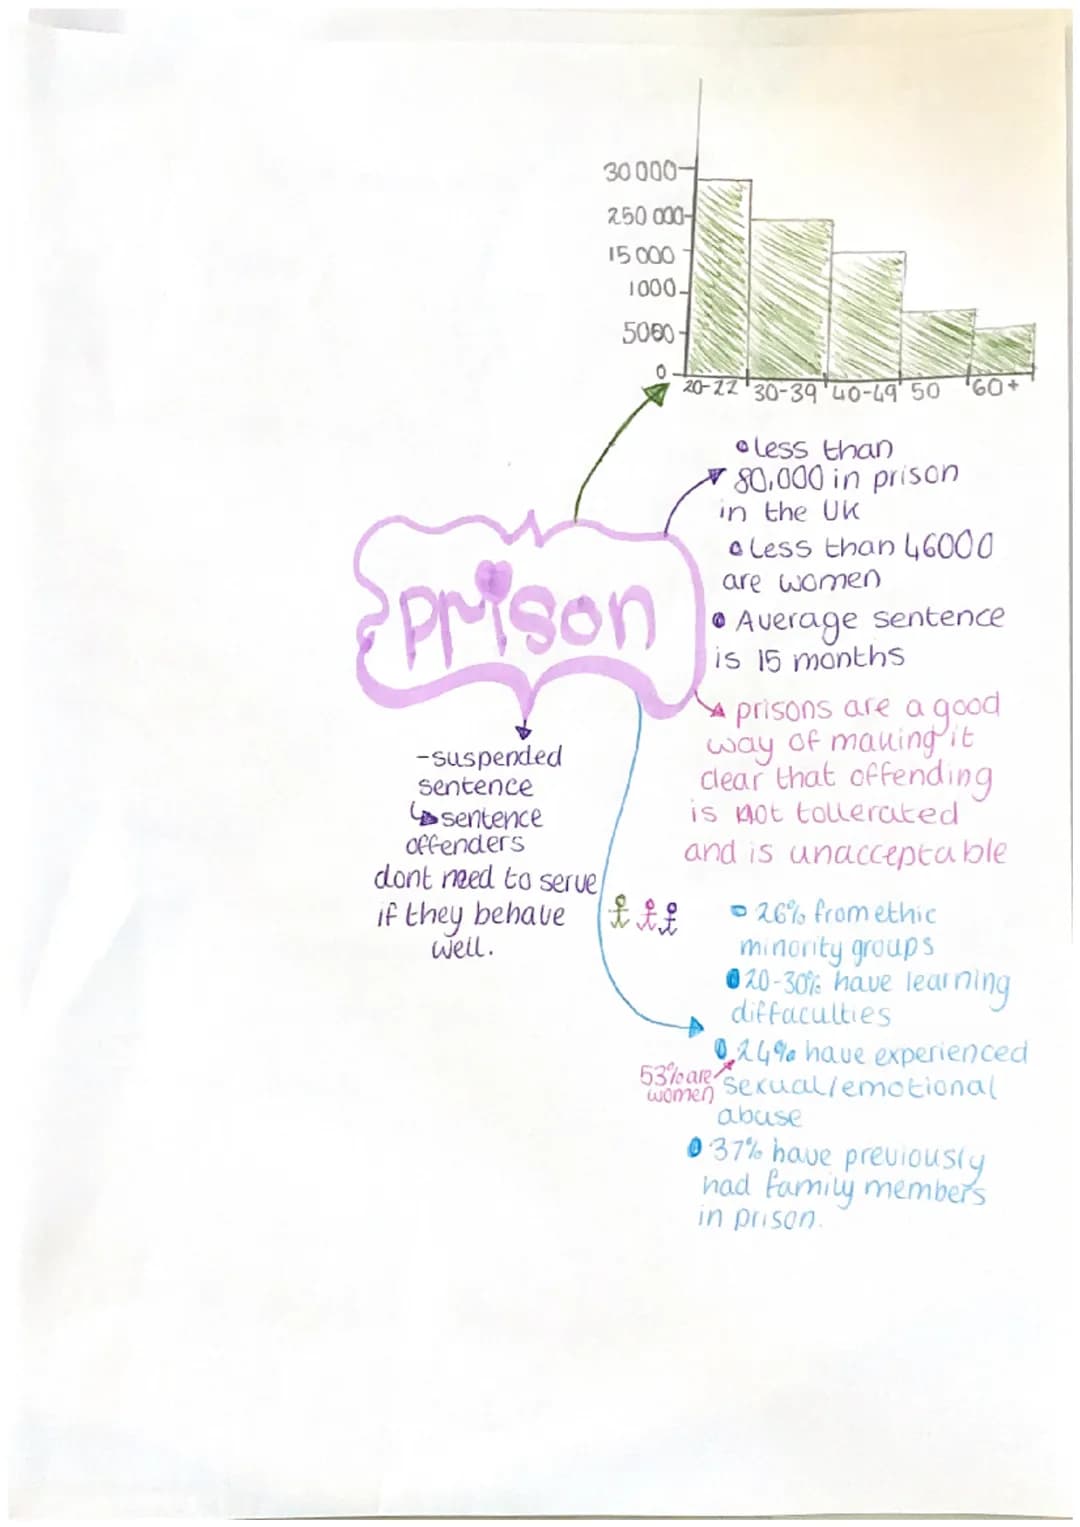 30 000
250 000
15 000
1000
5000
0
20-22 30-39 40-49 50 60+
•less than
80,000 in prison
in the UK
•less than 46000
are women
• Average sentence
is 15 months
prison
prisons are a good
way of making it
clear that offending
is not tollerated
and is unacceptable
-suspended
sentence
↳sentence
offenders
dont need to serve
if they behave
well.
26% from ethic
minority groups
•20-30% have learning
diffaculties
•24% have experienced
53% are
women
sexual/emotional
abuse
•37% have previously
had family members
in prison.